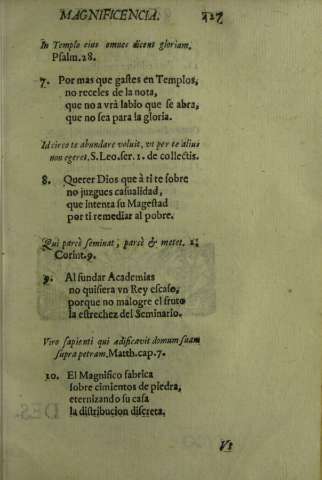 MAGNIFICENCIA. 127
In Templo eius omnes dicent gloriam,
Psalm.28.
7. Por mas que gastes en Templos,
no receles de la nota,
que no avrà labio que se abra,
que no sea para la gloria.
Idcirco te abundare voluit, vt per te alius
non egeret, S. Leo. ser. 1. de collectis.
8. Querer Dios que à ti te sobre
no juzgues casualidad,
que intenta su Magestad
por ti remediar al pobre.
Qui parcè seminat, parcè & metet. 2.
Corint.9.
9. Al fundar Academias
no quisiera vn Rey escaso,
porque no malogre el fruto
la estrechez del Seminario.
Viro sapienti qui ædificavit domum suam
supra petram. Matth.cap.7.
10. El Magnifico fabrica
sobre cimientos de piedra,
eternizando su casa
la distribucion discreta.